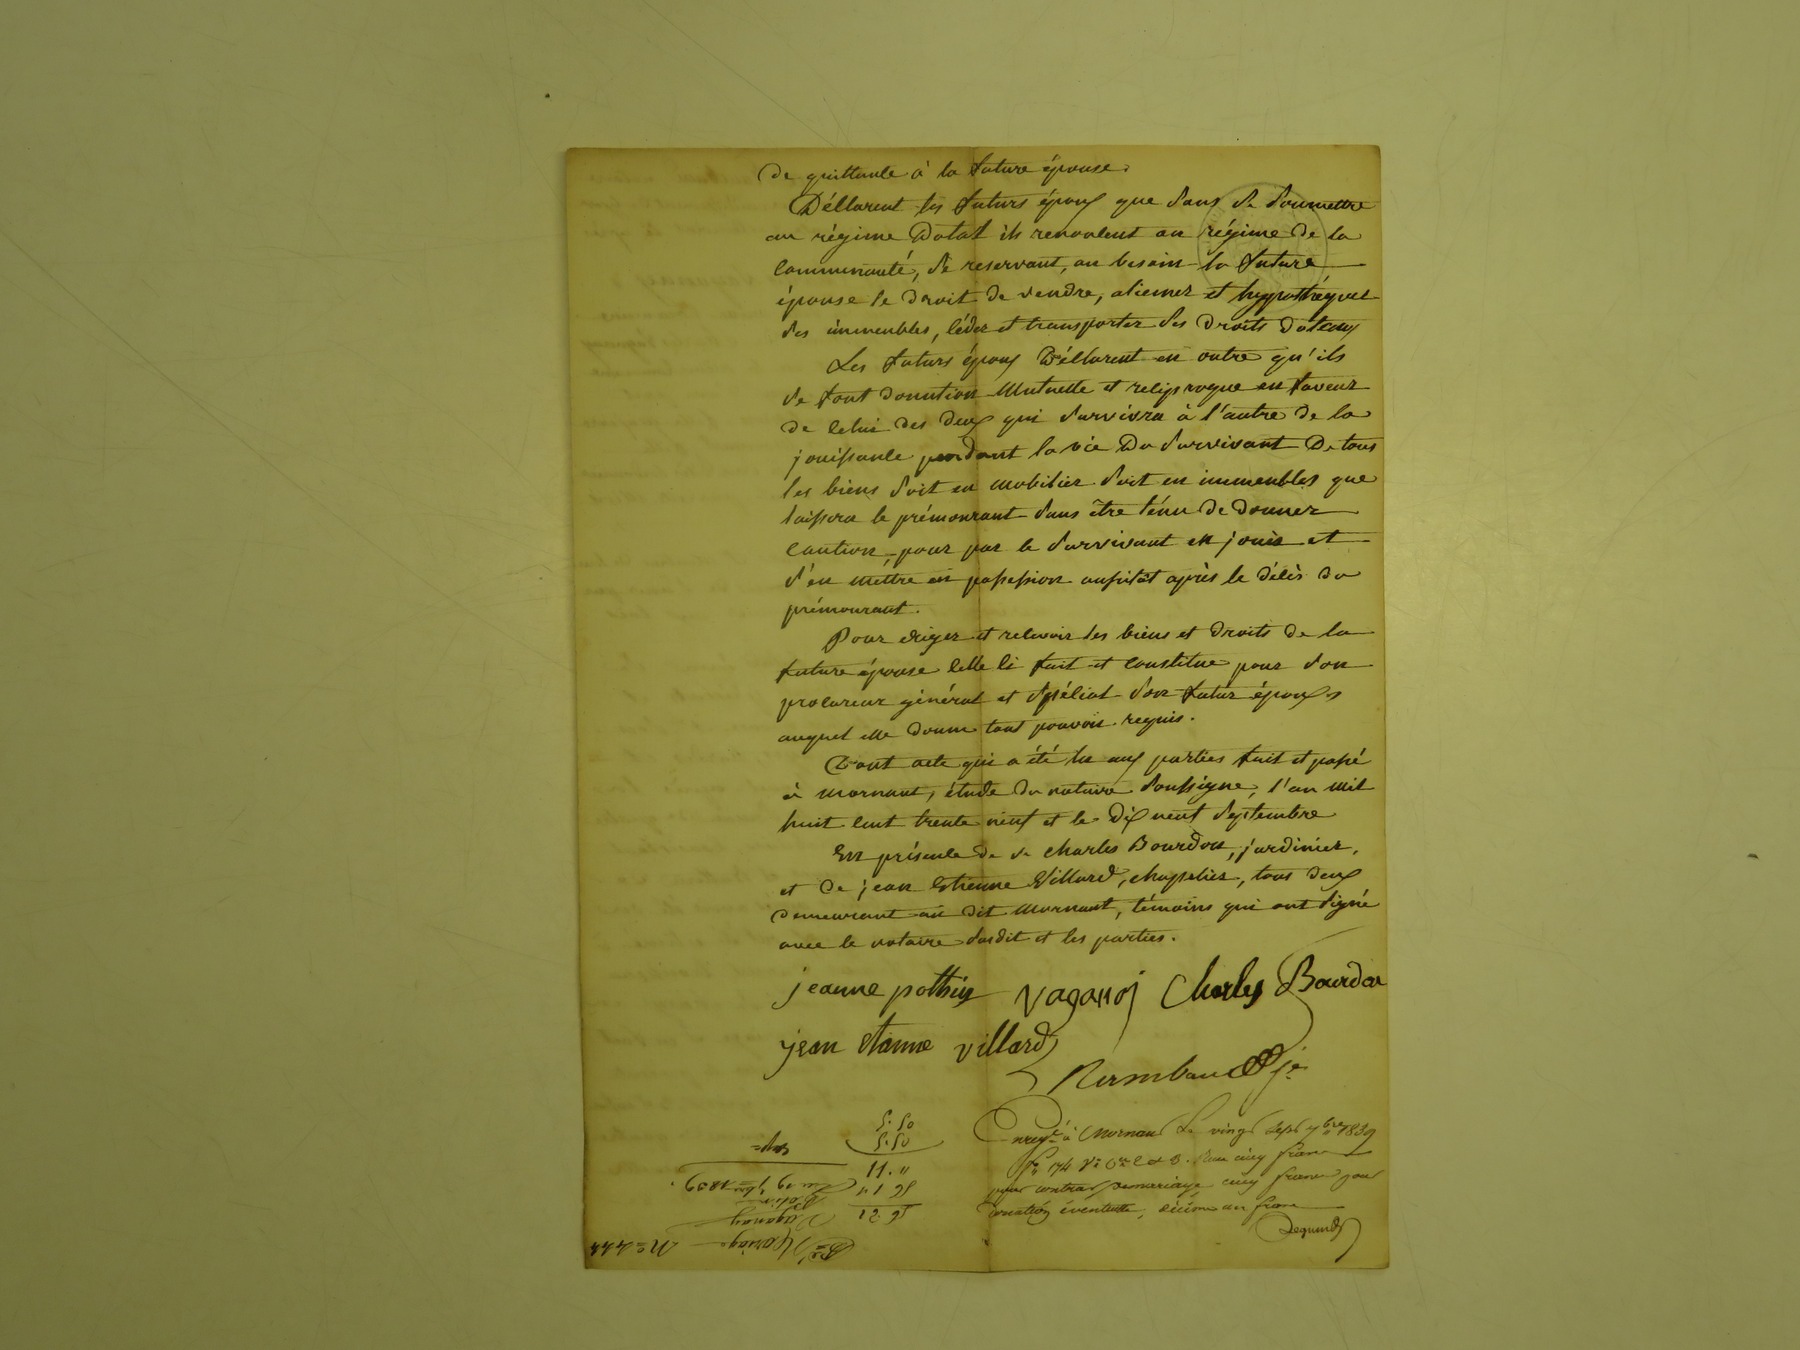 de quittance à la future épouse.
Déclarent les futurs époux que sans se soumettre
au régime Dotal ils renoncent au régime de la
communauté, se reservant, au besoin la future
épouse le droit de vendre, aliener et hypothéquer
ses immeubles, céder et transporter ses droits dotaux
Les futurs époux Déclarent en outre qu'ils
se font donation Mutuelle et reciproque en faveur
de celui des deux qui survivra à l'autre de la
jouissance pendant la vie Du survivant De tous
les biens soit en mobilier soit en immeubles que
laissera le prémourant sans être ténu de donner
caution, pour par le survivant en jouir et
s'en mettre en possession aussitôt après le décès du
prémourant.
Pour exiger et recevoir les biens et droits de la
future épouse celle ci fait et constitue pour son
procureur général et spécial son futur époux
auquel elle donne tout pouvoir requis.
Dont acte qui a été lu aux parties fait et passé
à Mornant, étude du notaire soussigné, l'an mil
huit cent trente neuf et le Dix neuf septembre
En présence de sr Charles Bourdon, jardinier,
et de jean Etienne Villard, chapelier, tous deux
demeurant au dit Mornant, témoins qui ont signé
avec le notaire susdit et les parties.
jeanne pothin Vaganay Charles Bourdon
jean etienne villard
Enregé à Mornant Le vingt sept 7bre 1839
fo 174 Vo Ce 2 et 3. Reçu cinq francs
pour contrat de mariage cinq francs pour
donation éventuelle, décime un franc
5.50
5.50
11. "
Mariage
Vaganay
Pothin
Du 19 7bre 1839